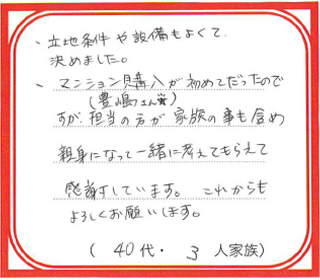 ・立地条件や設備もよくて、
決めました。
・マンション購入が初めてだったので
(豊嶋さん★)
すが、担当の方が家族の事も含め
親身になって一緒に考えてもらえて
感謝しています。これからも
よろしくお願いします。
(40代・3人家族)